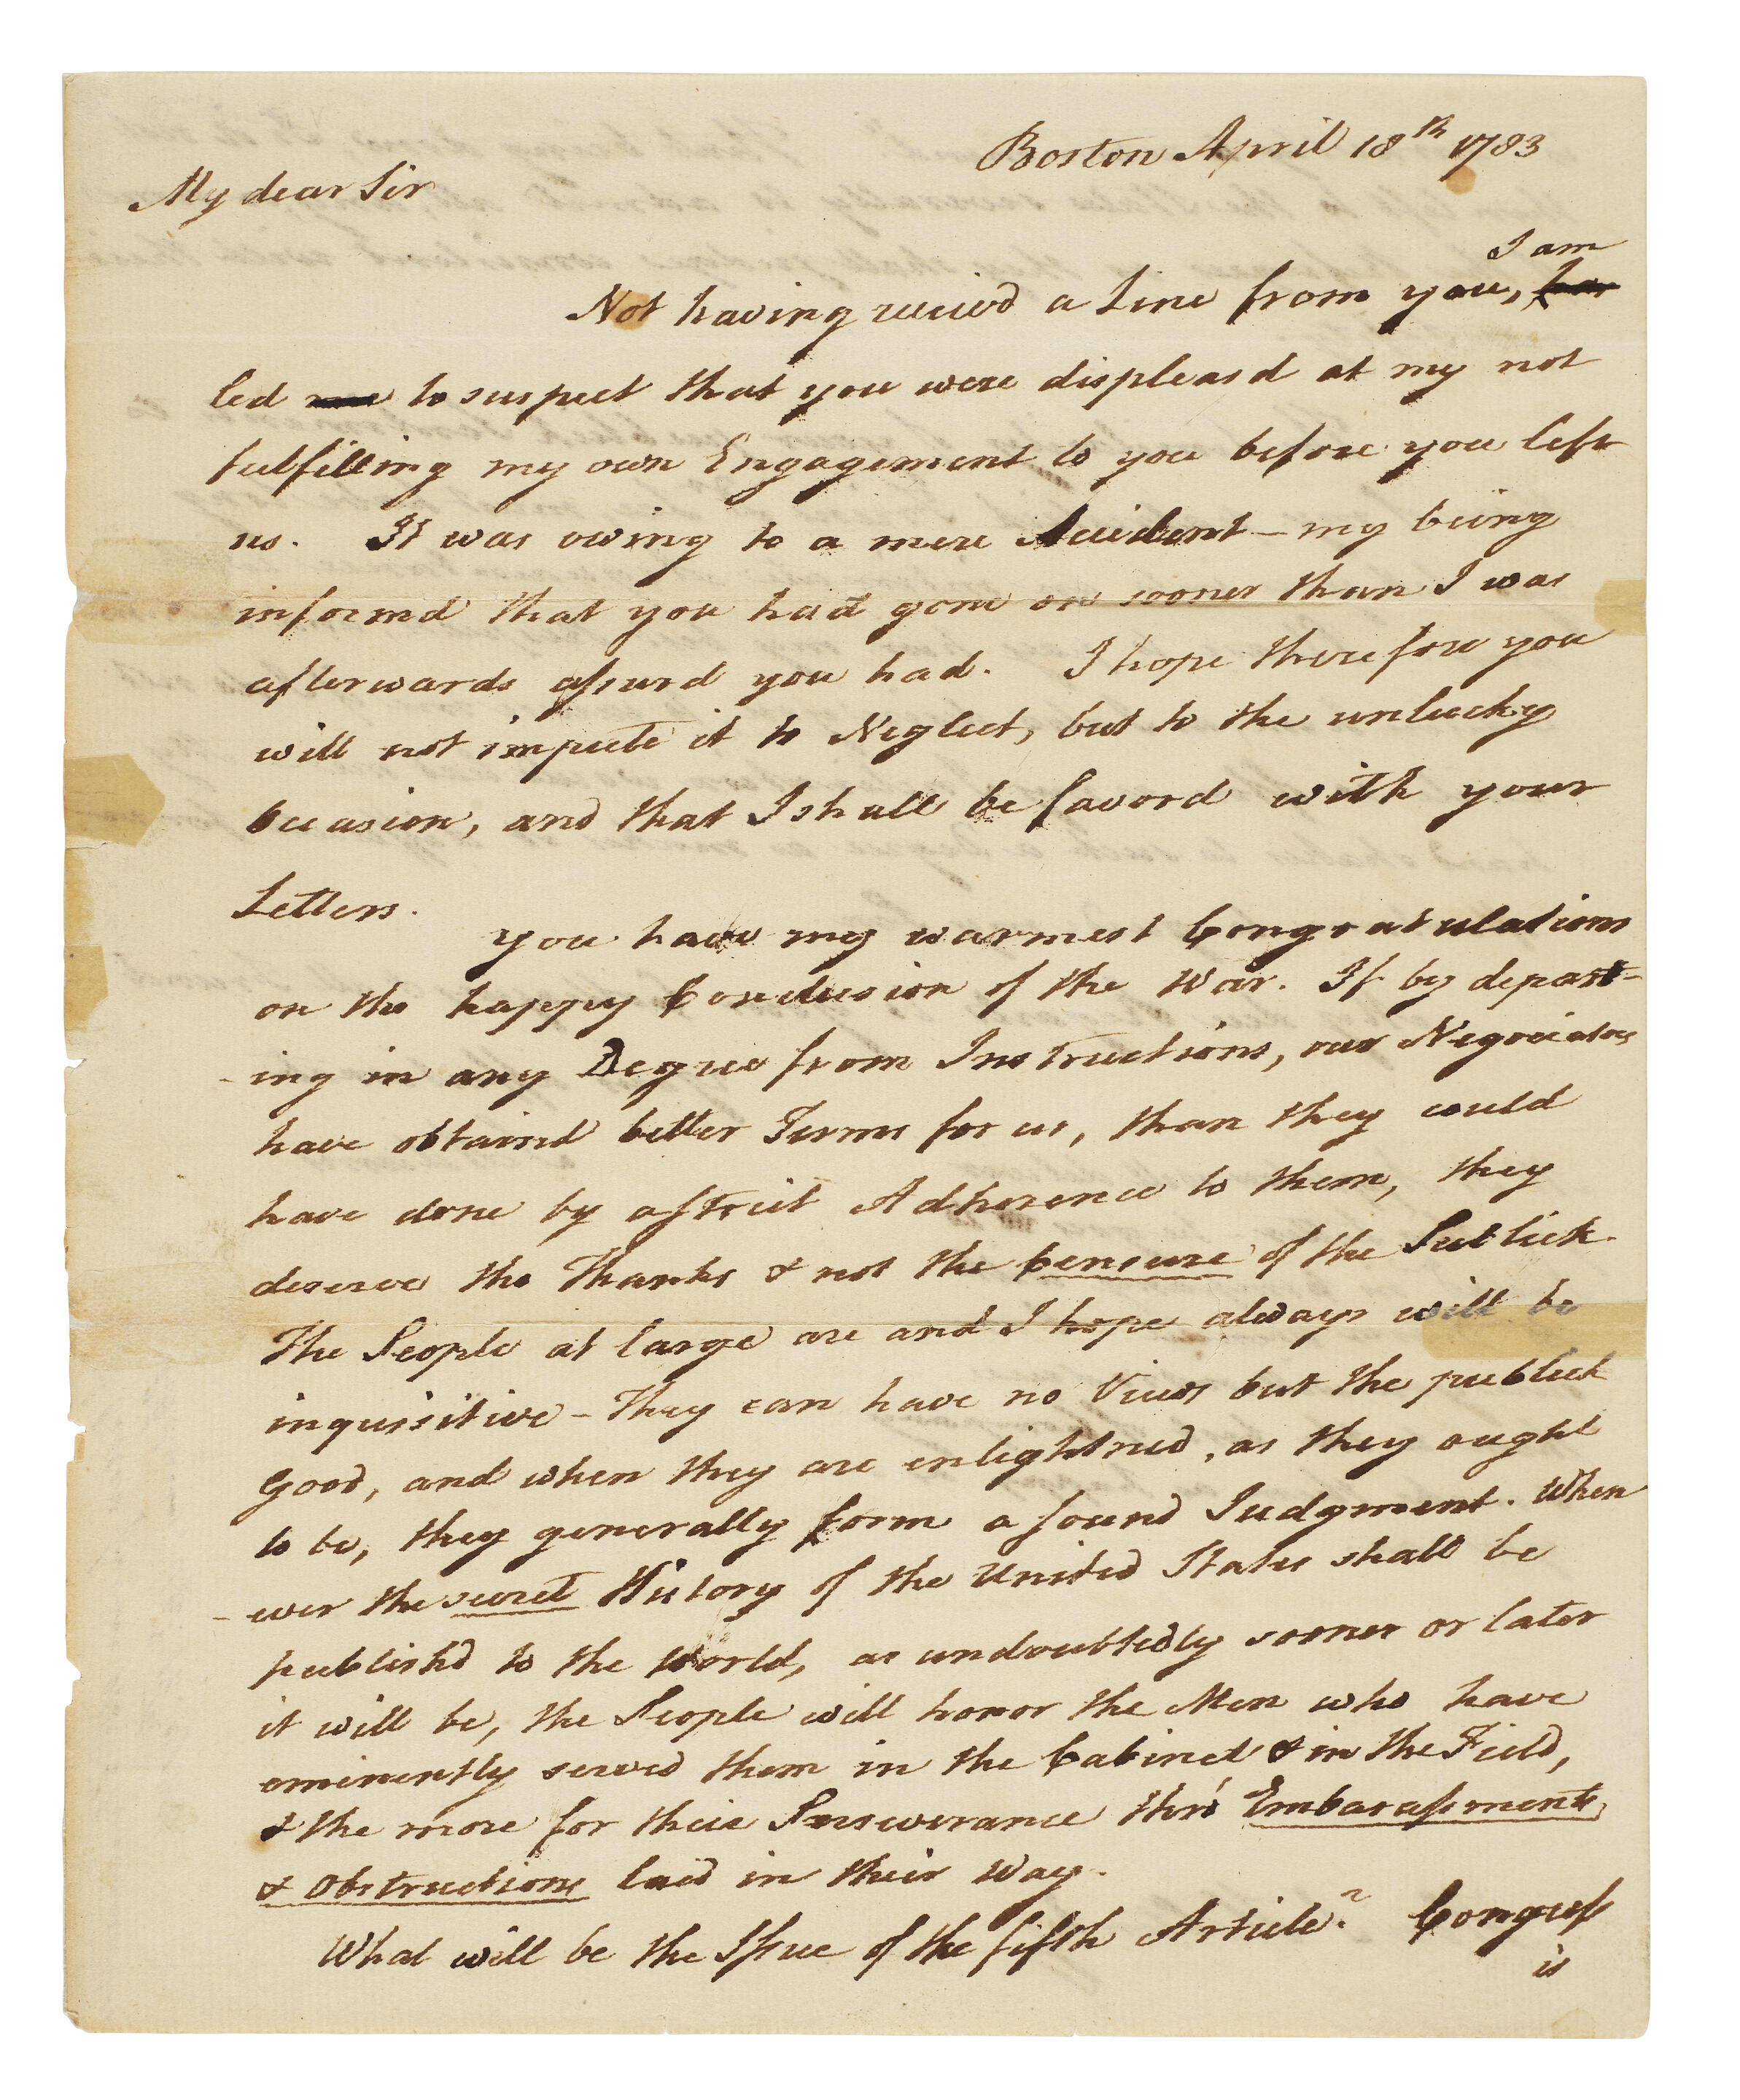 Boston April 18th 1783
My dear Sir
I am
Not having recievd a Line from you,
led to suspect that you were displeasd at my not
fulfilling my own Engagement to you before you left
us. It was owing to a mere Accident - my being
informd that you had gone on sooner than I was
afterwards assurd you had. I hope therefore you
will not impute it to Neglect, but to the unlucky
Occasion, and that I shall be favord with your
Letters.
You have my warmest Congratulations
on the happy Conclusion of the War. If by depart-
-ing in any Degree from Instructions, our Negociators
have obtaind better Terms for us, than they could
have done by a strict Adherence to them, they
deserve the Thanks & not the Censure of the Publick.
The People at large are and I hope always will be
inquisitive - They can have no Views but the publick
Good, and when they are enlightned, as they ought
to be, they generally form a sound Judgment. When
-ever the secret History of the United States shall be
publishd to the World, as undoubtedly sooner or later
it will be, the People will honor the Men who have
eminently served them in the Cabinet & in the Field,
& the more for their Perseverance thro' Embarassments
& Obstructions laid in their Way.
What will be the Issue of the fifth Article? Congress
is